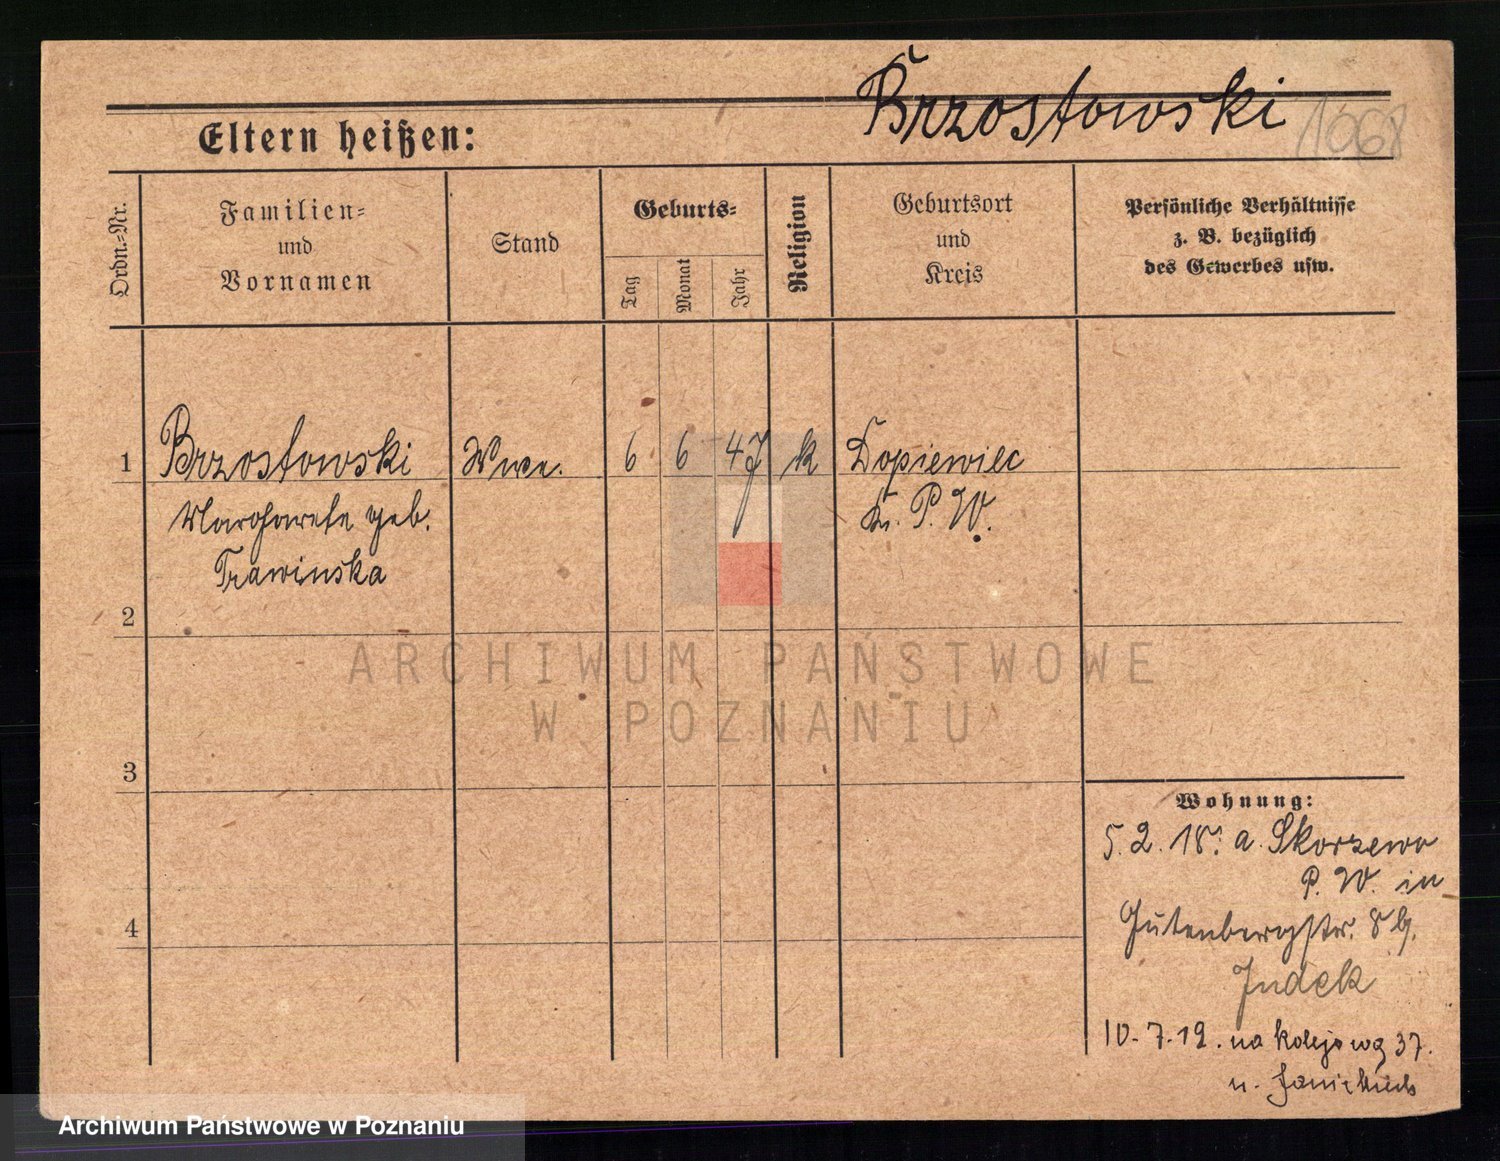 Brzostowski 1068
Eltern heißen:
Ordn.-Nr.
Familien-
und
Vornamen
Stand
Geburts-
Tag
Monat
Jahr
Religion
Geburtsort
und
Kreis
Persönliche Verhältnisse
z. B. bezüglich
des Gewerbes usw.
1 Brzostowski Wwe. 6 6 47 k Dopiewiec
Margarete geb. Kr. P. W.
Trawinska
2
3
4
ARCHIWUM PAŃSTWOWE
W POZNANIU
Wohnung:
5. 2. 18. a. Skorzewo
P. W. in
Gutenbergstr. 8
Judek
10. 7. 19. na kolejową 37.
u.
Archiwum Państwowe w Poznaniu